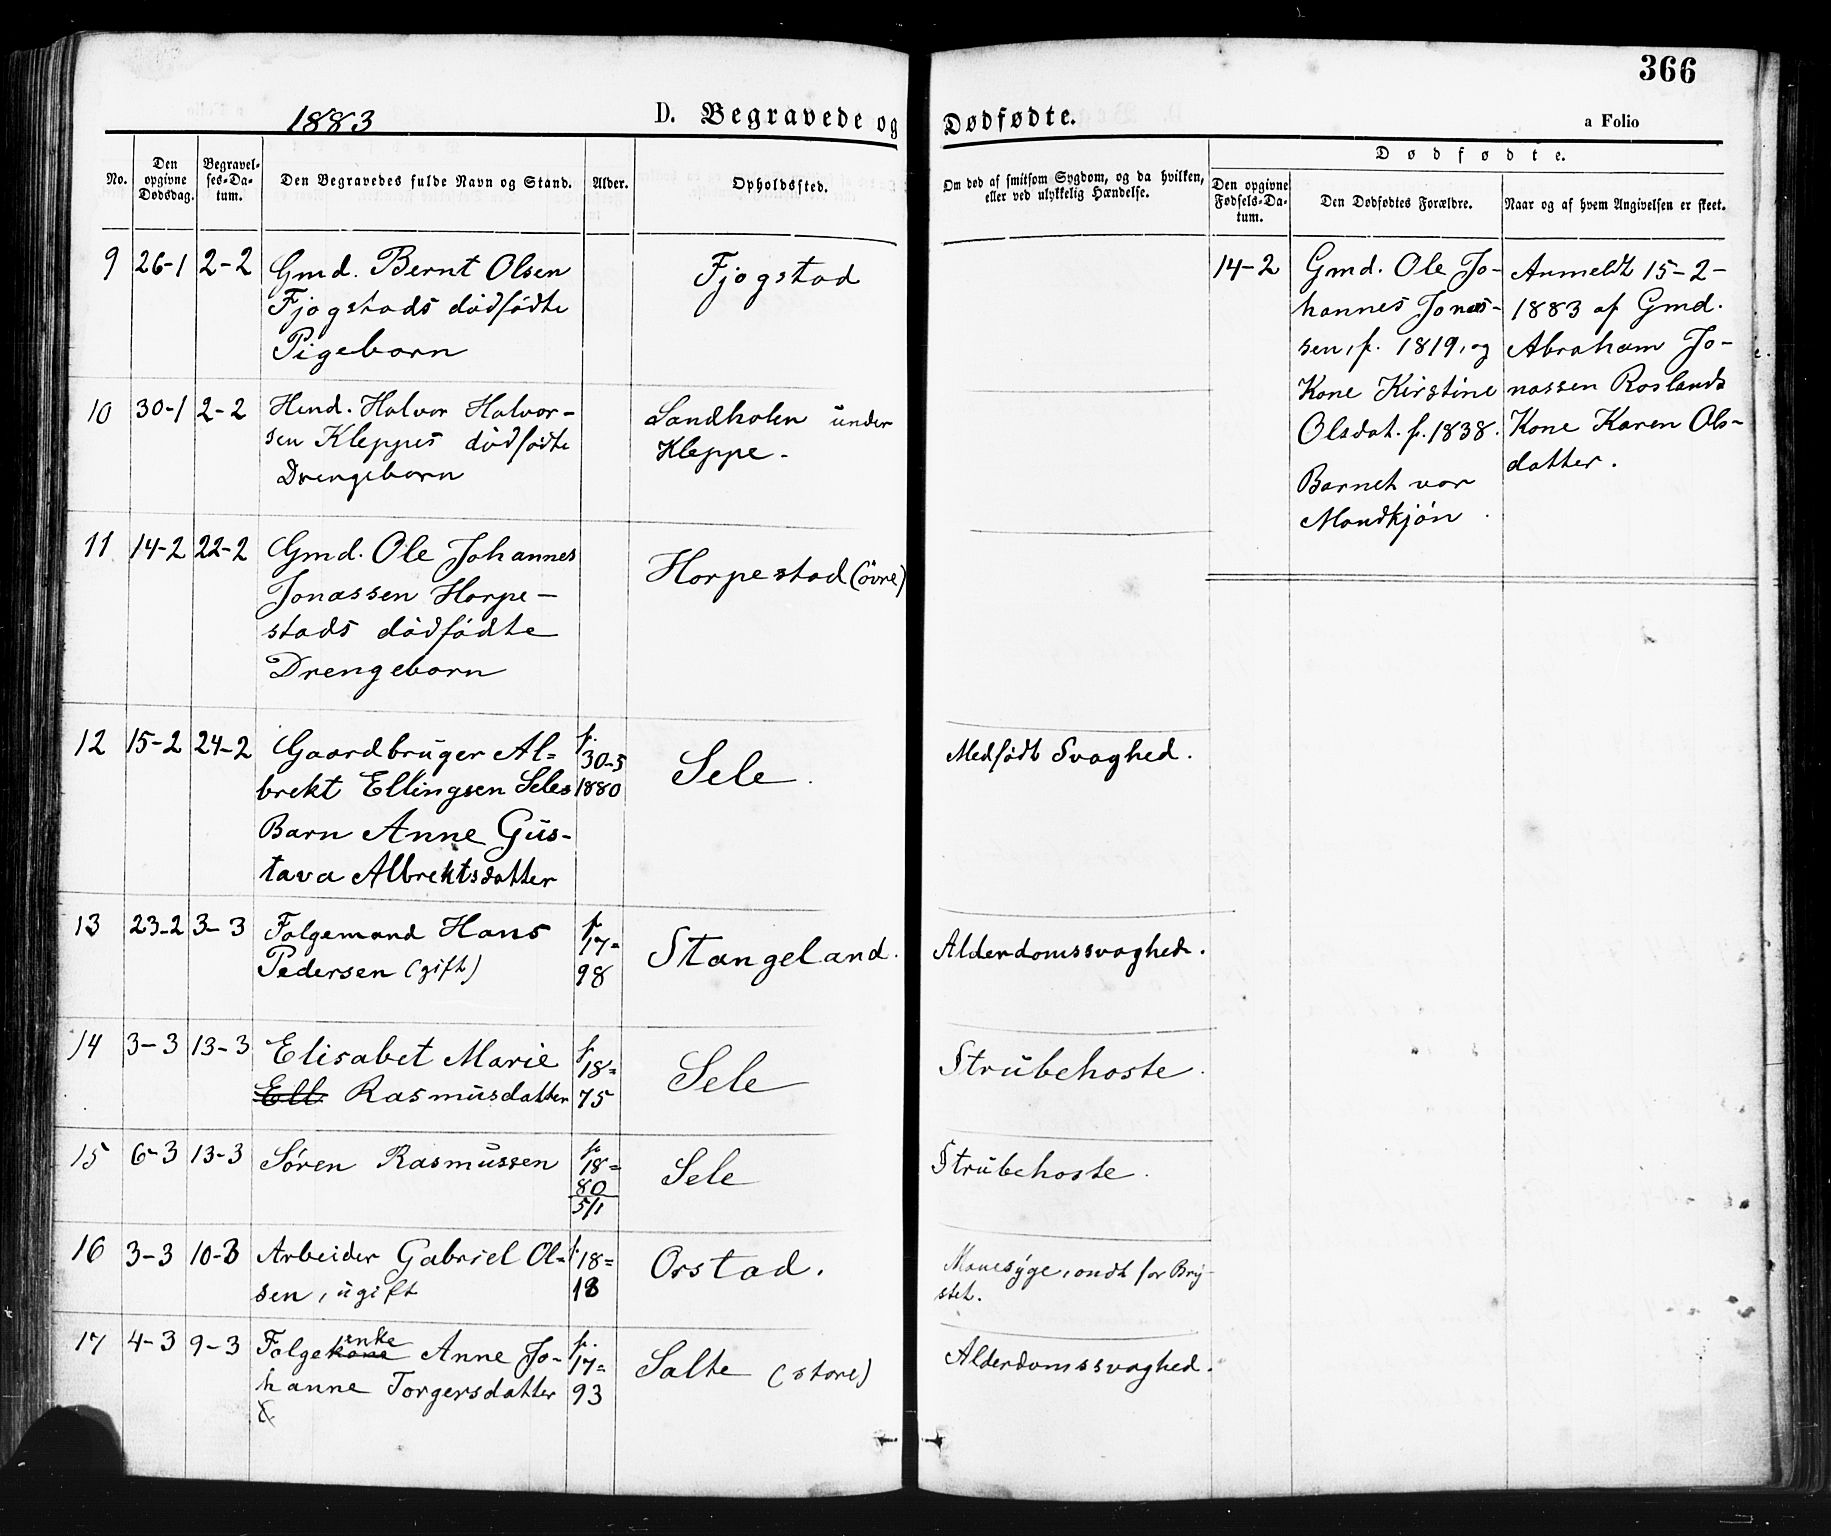 366
1883
D. Begravede og Dødfødte.
a Folio
No.
Den opgivne Dødsdag.
Begravel-
ses-Da-
tum.
Den Begravedes fulde Navn og Stand.
Alder.
Opholdssted.
Om død af smitsom Sygdom, og da hvilken,
eller ved ulykkelig Hændelse.
Dødfødte.
Den opgivne
Fødsels-Da-
tum.
Den Dødfødtes Forældre.
Naar og af hvem Angivelsen er skeet.
9 26-1 2-2 Gmd. Bernt Olsen
Fjogstads dødfødte
Pigebarn
Fjogstad
10 30-1 2-2 Husd. Halvor Halvor-
sen Kleppes dødfødte
Drengebarn
Sandholen under
Kleppe.
11 14-2 22-2 Gmd. Ole Johannes
Jonassen Horpe-
stads dødfødte
Drengebarn
Horpestad (övre)
14-2
Gmd. Ole Jo-
hannes Jonas-
sen, f. 1819, og
Kone Kirstine
Olsdat. f. 1838.
Barnet var
Mandkjøn.
Anmeldt 15-2-
1883 af Gmd.
Abraham Jo-
nassen Roslands
Kone Karen Ols-
datter.
12 15-2 24-2 Gaardbruger Al-
brekt Ellingsen Seles
Barn Anne Gus-
tava Albrektsdatter
f.
30-5
1880
Sele.
Medfødt Svaghed.
13 23-2 3-3 Folgemand Hans
Pedersen (gift)
f.
17=
98
Stangeland.
Alderdomssvaghed.
14 3-3 13-3 Elisabet Marie
Ell. Rasmusdatter
f.
18=
75
Sele
Strubehoste.
15 6-3 13-3 Søren Rasmussen
f.
18=
80
5/1
Sele
Strubehoste.
16 3-3 10-3 Arbeider Gabriel Ol=
sen, ugift
f.
18=
18
Orstad.
ondt for Bry-
stet.
17 4-3 9-3 Folgekone enke Anne Jo-
hanne Torgersdatter
f.
17=
93
Salte (store)
Alderdomssvaghed.